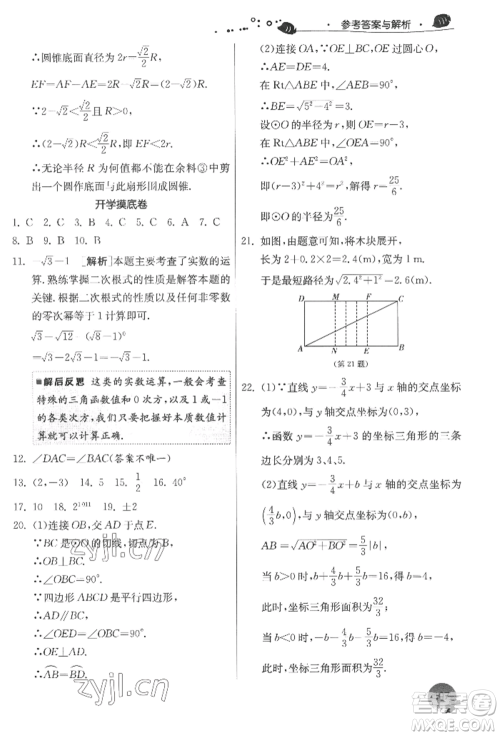 参考答案与解析
∴圆锥底面直径为 2r-√2/2 R,
EF=AF-AE=R-√2/2 R,
∵2-√2<1 且 R>0,
∴(2-√2)R<√2/2 R,即 EF<2r.
∴无论半径 R 为何值都不能在余料③中剪出一个圆作底面与此扇形围成圆锥.
开学摸底卷
1. C 2. C 3. C 4. C 5. C 6. C 7. C
8. B 9. B 10. C
11. -√3-1 [解析]本题主要考查了实数的运算.熟练掌握二次根式的性质是解答本题的关键.根据二次根式的性质以及非零有理数的零次幂等于 1 计算即可.
√3-√12-(√6)⁰
=√3-2√3-1
=-√3-1.
解后反思 这类的实数运算,一般会考查特殊的三角函数值和 0 次方,以及 1 或-1 的各类次方,我们只要把握好本质数值计算就可以计算正确.
12. ∠DAC=∠BAC(答案不唯一)
13. (2,-3) 14. 5 15. 1/2 16. 40°
17. 10 18. 2¹⁰¹¹
20. (1)连接 OB,交 AD 于点 E.
∵BC 是⊙O 的切线,切点为 B,
∴∠OBC=90°.
∵四边形 ABCD 是平行四边形,
∴AD∥BC.
∴∠OED=∠OBC=90°.
∴OE⊥AD.
又∵OE 过圆心 O,
∴AB=BD.
(2)连接 OA,∵OE⊥BC,OE 过圆心 O,
∴AE=DE=4.
在 Rt△ABE 中,∠AEB=90°,
∴BE=√(5²-4²)=3.
设⊙O 的半径为 r,则 OE=r-3.
在 Rt△OAE 中,∠OEA=90°,
∴OE²+AE²=OA²,
即(r-3)²+4²=r²,解得 r=25/6.
∴⊙O 的半径为 25/6.
21. 如图,由题意可知,将木块展开,
长为 2+0.2×2=2.4(米),宽为 1 米.
于是最短路径为√(2.4²+1²)=2.6(米).
D M F C
A N E B
(第 21 题)
22. (1)∵直线 y=-3/4 x+3 与 x 轴的交点坐标为(4,0),与 y 轴的交点坐标为(0,3),
∴函数 y=-3/4 x+3 的坐标三角形的三边长分别为 3,4,5.
(2)直线 y=-3/4 x+b 与 x 轴的交点坐标为(4/3 b,0),与 y 轴的交点坐标为(0,b).
当 b>0 时,b+4/3 b+5/3 b=16,得 b=4,
此时,坐标三角形面积为 32/3;
当 b<0 时,-b-4/3 b-5/3 b=16,得 b=-4,
此时,坐标三角形面积为 32/3.
zyjl.cn